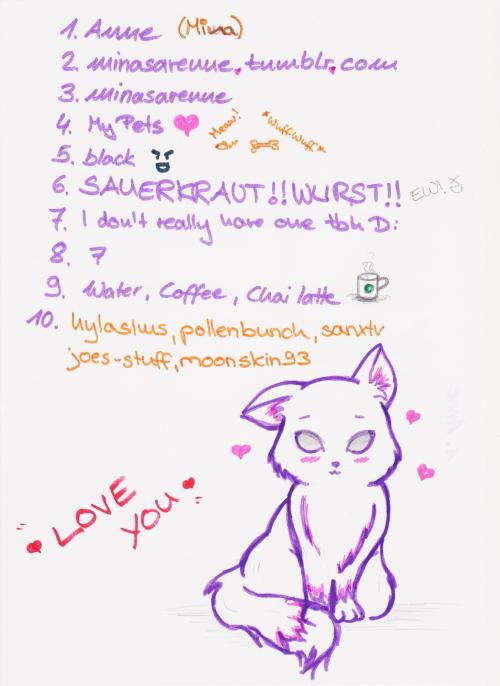 1. Anne (Mina)
2. minasarenne.tumblr.com
3. minasarenne
4. My Pets Meow! *WuffWuff*
5. black
6. SAUERKRAUT!! WURST!! EW!
7. I don't really have one tbh D:
8. 7
9. Water, Coffee, Chai latte
10. hylasius, pollenbunch, sanxtv
joes-stuff, moonskin93
LOVE
YOU